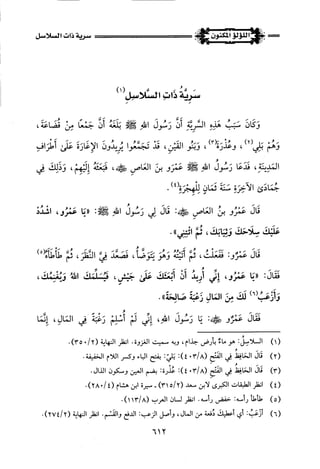 اللؤلؤ المكنون
سرية ذات السلاسل
سَرِيَّةُ ذَاتِ السَّلَاسِلِ(١)
وَكَانَ سَبَبُ هَذِهِ السَّرِيَّةِ أَنَّ رَسُولَ اللهِ ﷺ بَلَغَهُ أَنَّ جَمْعًا مِنْ قُضَاعَةَ،
وَهُمْ بَلِيٌّ(٢)، وعُذْرَةُ(٣)، وَبَنُو القَيْنِ، قَدْ تَجَمَّعُوا يُرِيدُونَ الإِغَارَةَ عَلَى أَطْرَافِ
المَدِينَةِ، فَدَعَا رَسُولُ اللهِ ﷺ عَمْرَو بنَ العَاصِ ﷺ، فَبَعَثَهُ إِلَيْهِمْ، وَذَلِكَ فِي
جُمَادَى الآخِرَةِ سَنَةَ ثَمَانٍ لِلْهِجْرَةِ(٤).
قَالَ عَمْرُو بنُ العَاصِ ﷺ: قَالَ لِي رَسُولُ اللهِ ﷺ: «يَا عَمْرُو، اشْدُدْ
عَلَيْكَ سِلَاحَكَ وَثِيَابَكَ، ثُمَّ ائْتِنِي».
قَالَ عَمْرٌو: فَفَعَلْتُ، ثُمَّ أَتَيْتُهُ وَهُوَ يَتَوَضَّأُ، فَصَعَّدَ فِيَّ النَّظَرَ، ثُمَّ طَأْطَأَهُ(٥)
فَقَالَ: «يَا عَمْرُو، إِنِّي أُرِيدُ أَنْ أَبْعَثَكَ عَلَى جَيْشٍ، فَيُسَلِّمَكَ اللهُ وَيُغْنِمَكَ،
وَأَزْعَبُ(٦) لَكَ مِنَ المَالِ زَعْبَةً صَالِحَةً».
فَقَالَ عَمْرٌو ﷺ: يَا رَسُولَ اللهِ، إِنِّي لَمْ أُسْلِمْ رَغْبَةً فِي المَالِ، إِنَّمَا
(١) السلاسل: هو ماءٌ بأرض جذام، وبه سميت الغزوة. انظر النهاية (٣٥٠/٢).
(٢) قَالَ الحَافِظُ فِي الفَتْحِ (٤٠٣/٨): بَلِيٌّ: بفتح الباء وكسر اللام الخفيفة.
(٣) قَالَ الحَافِظُ فِي الفَتْحِ (٤٠٣/٨): عُذْرة: بضم العين وسكون الذال.
(٤) انظر الطبقات الكبرى لابن سعد (٣١٥/٢) - سيرة ابن هشام (٢٨٠/٤).
(٥) طأطأ رأسه: خفض رأسه. انظر لسان العرب (١١٣/٨).
(٦) أزعبُ: أي أعطيك دُفعة من المال، وأصل الزعب: الدفع والقَسْم. انظر النهاية (٢٧٤/٢).
٦١٢